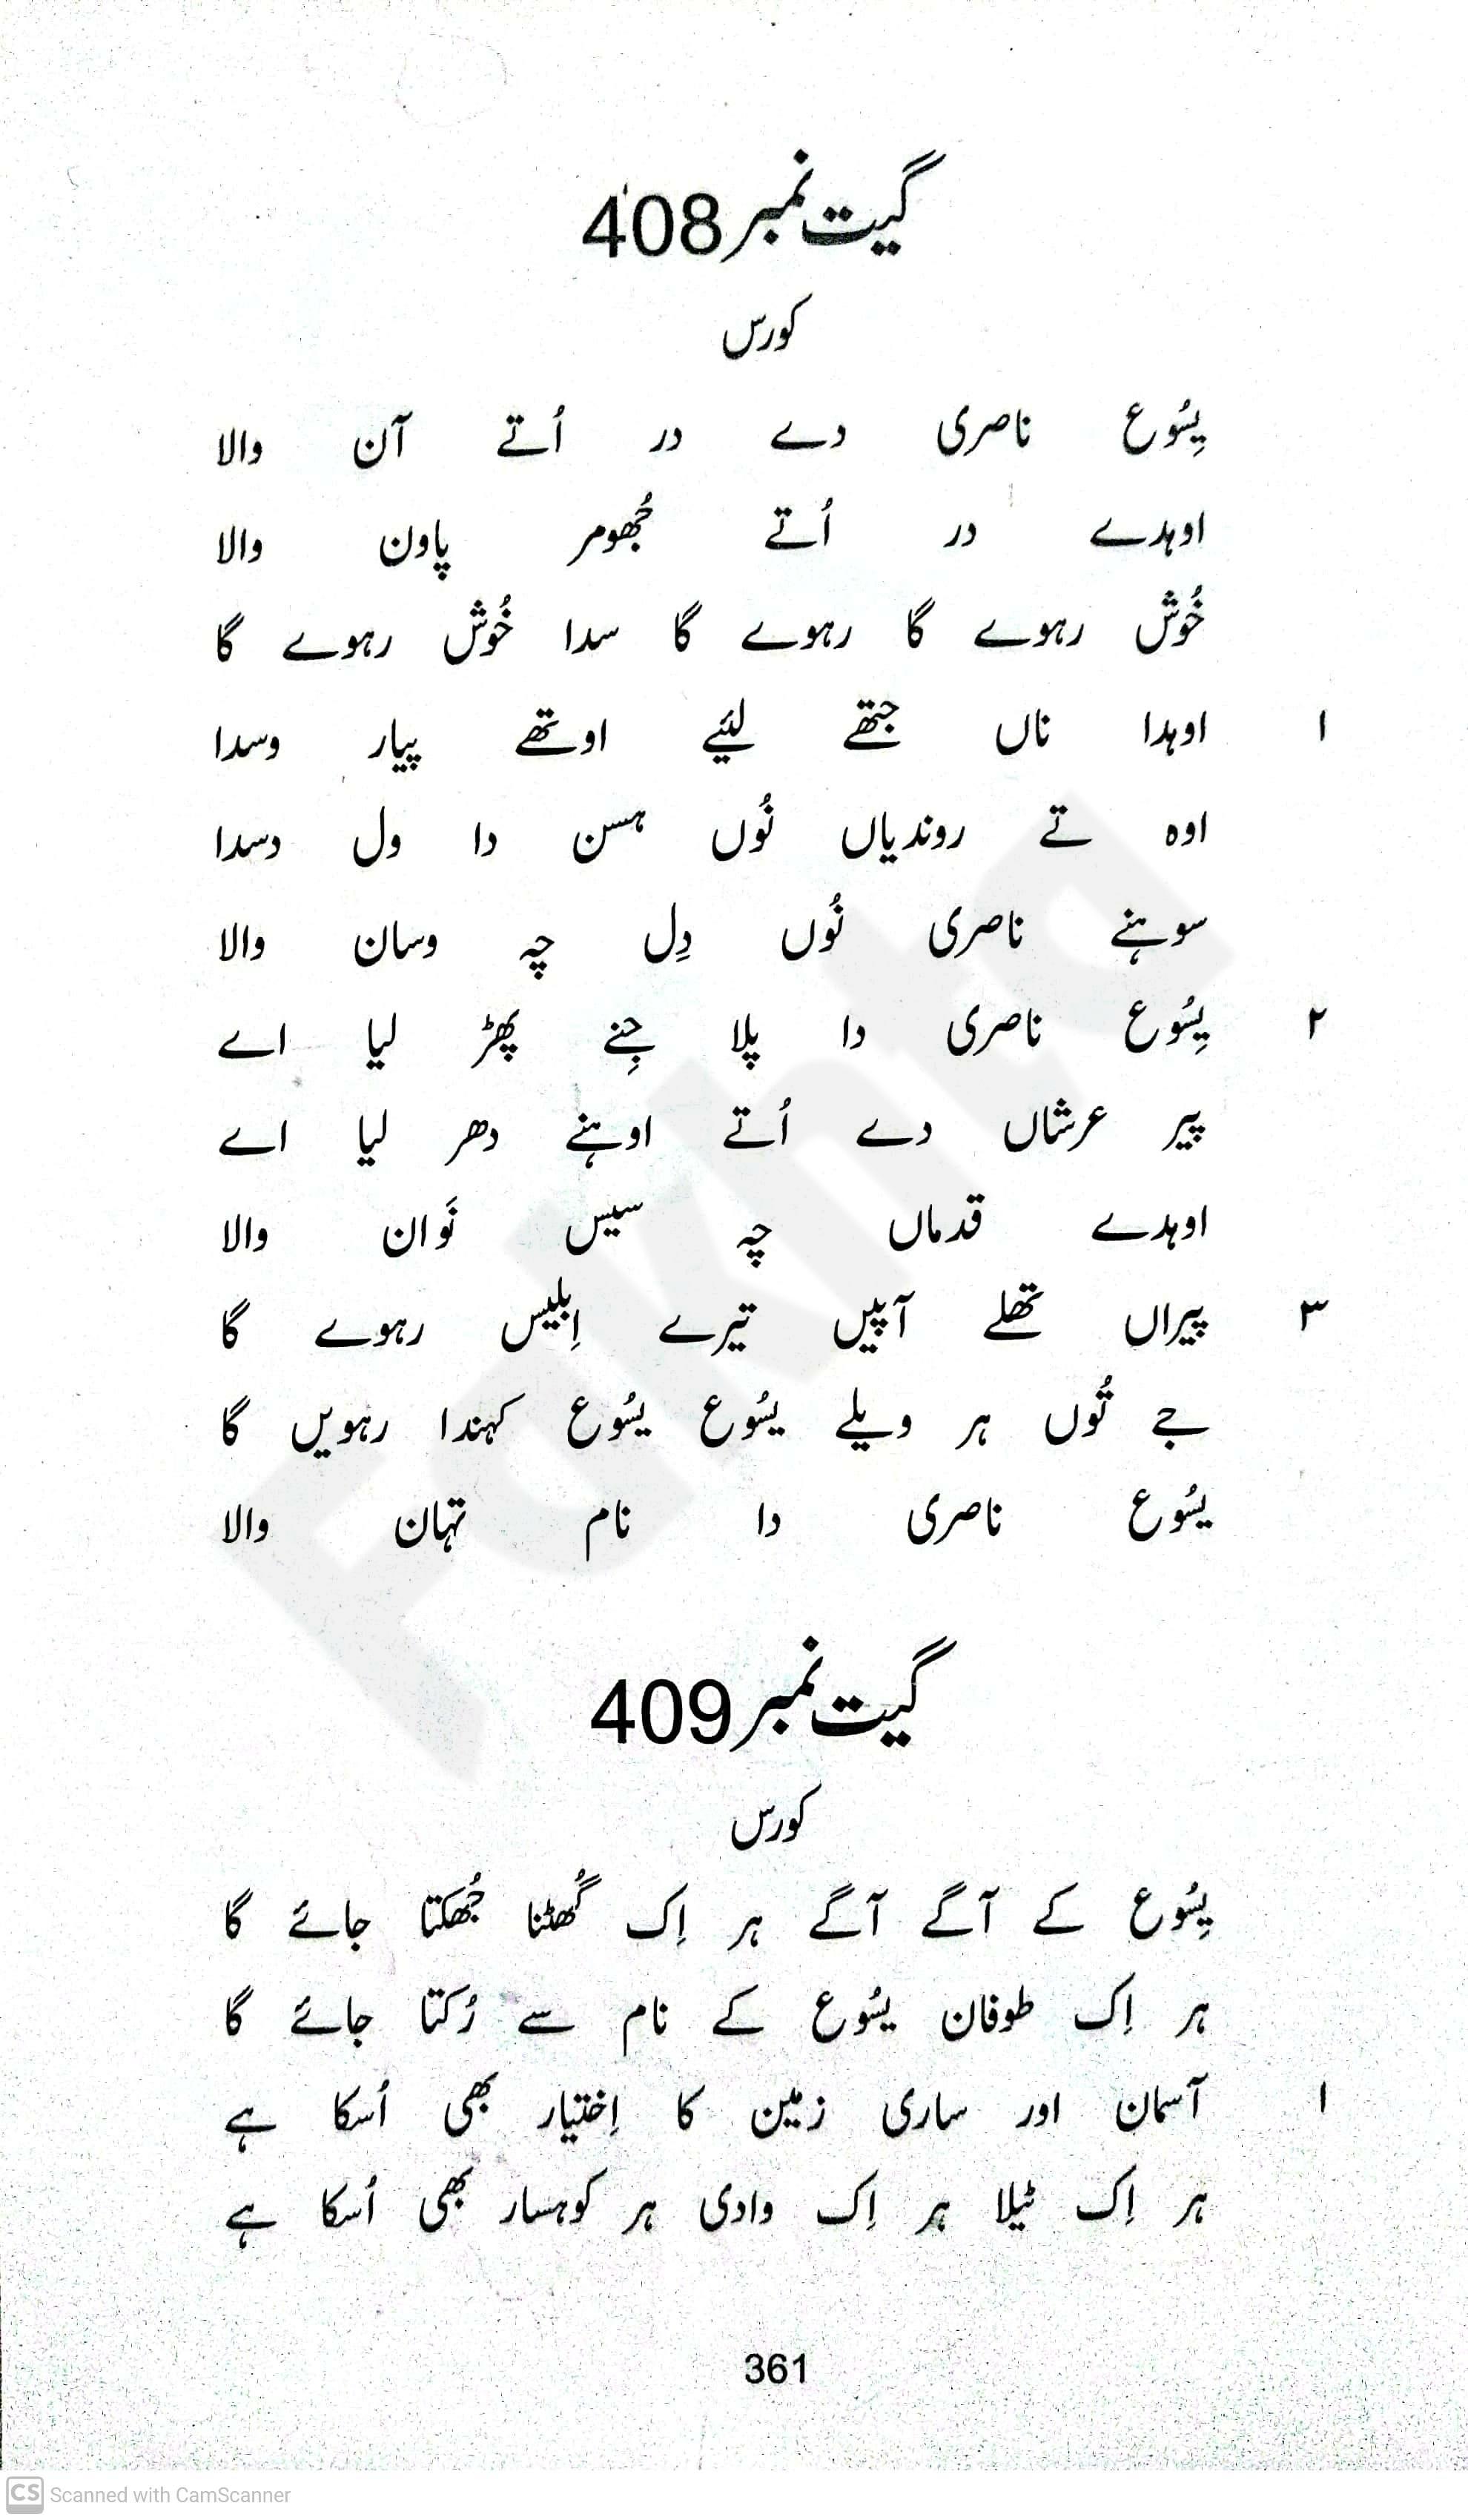 گیت نمبر 408
کورس
یِسُوع ناصری دے در اُتے آن والا
اوہدے در اُتے جُھومر پاون والا
خُوش رہوے گا رہوے گا سدا خُوش رہوے گا
۱ اوہدا ناں جتھے لئیے اوتھے پیار وسدا
اوہ تے روندیاں نُوں ہسن دا ول دسدا
سوہنے ناصری نُوں دِل چہ وسان والا
۲ یِسُوع ناصری دا پلا جِنے پھڑ لیا اے
پیر عرشاں دے اُتے اوہنے دھر لیا اے
اوہدے قدماں چہ سیس نَوان والا
۳ پیراں تھلے آپیں تیرے اِبلیس رہوے گا
جے تُوں ہر ویلے یسُوع یسُوع کہندا رہویں گا
یسُوع ناصری دا نام تہان والا
گیت نمبر 409
کورس
یِسُوع کے آگے آگے ہر اِک گُھٹنا جُھکتا جائے گا
ہر اِک طوفان یسُوع کے نام سے رُکتا جائے گا
۱ آسمان اور ساری زمین کا اِختیار بھی اُسکا ہے
ہر اِک ٹیلا ہر اِک وادی ہر کوہسار بھی اُسکا ہے
361
Fakhta
CS Scanned with CamScanner